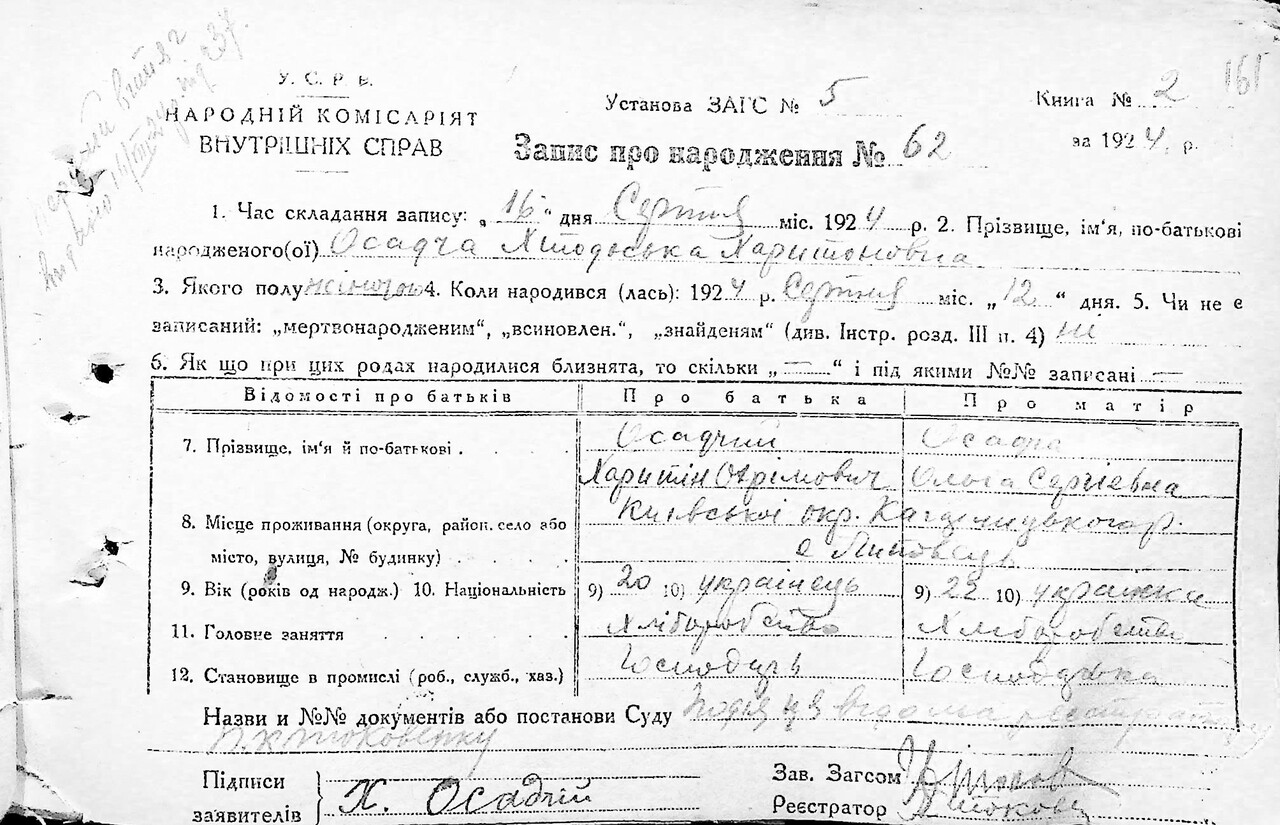 161
У. С. Р. Р.
НАРОДНІЙ КОМІСАРІЯТ
ВНУТРІШНІХ СПРАВ
Установа ЗАГС № 5
Книга № 2
за 1924 р.
Запис про народження № 62
1. Час складання запису: „16“ дня Серпня міс. 1924 р. 2. Прізвище, ім'я, по-батькові
народженого(ої) Осадча Хтодоська Харитоновна
3. Якого полу жіночого 4. Коли народився (лась): 1924 р. Серпня міс. „12“ дня. 5. Чи не є
записаний: „мертвонародженим“, „всиновлен.“, „знайденям“ (див. Інстр. розд. III п. 4) ні
6. Як що при цих родах народилися близнята, то скільки „—“ і під якими №№ записані —
Відомості про батьків Про батька Про матір
7. Прізвище, ім'я й по-батькові . . . . Осадчий Осадча
Харитін Охрімович Ольга Сергіевна
8. Місце проживання (округа, район, село або Київської окр. Кагарлицького р.
місто, вулиця, № будинку) . . . . . с Липовець
9. Вік (років од народж.) 10. Національність 9) 20 10) українець 9) 23 10) українка
11. Головне заняття . . . . . Хліборобство Хліборобство
12. Становище в промислі (роб., служб., хаз.) Господарь Господарка
Назви и №№ документів або постанови Суду Подія ця відома реєстратору
Підписи
заявителів
Х. Осадчій
Зав. Загсом
Реєстратор